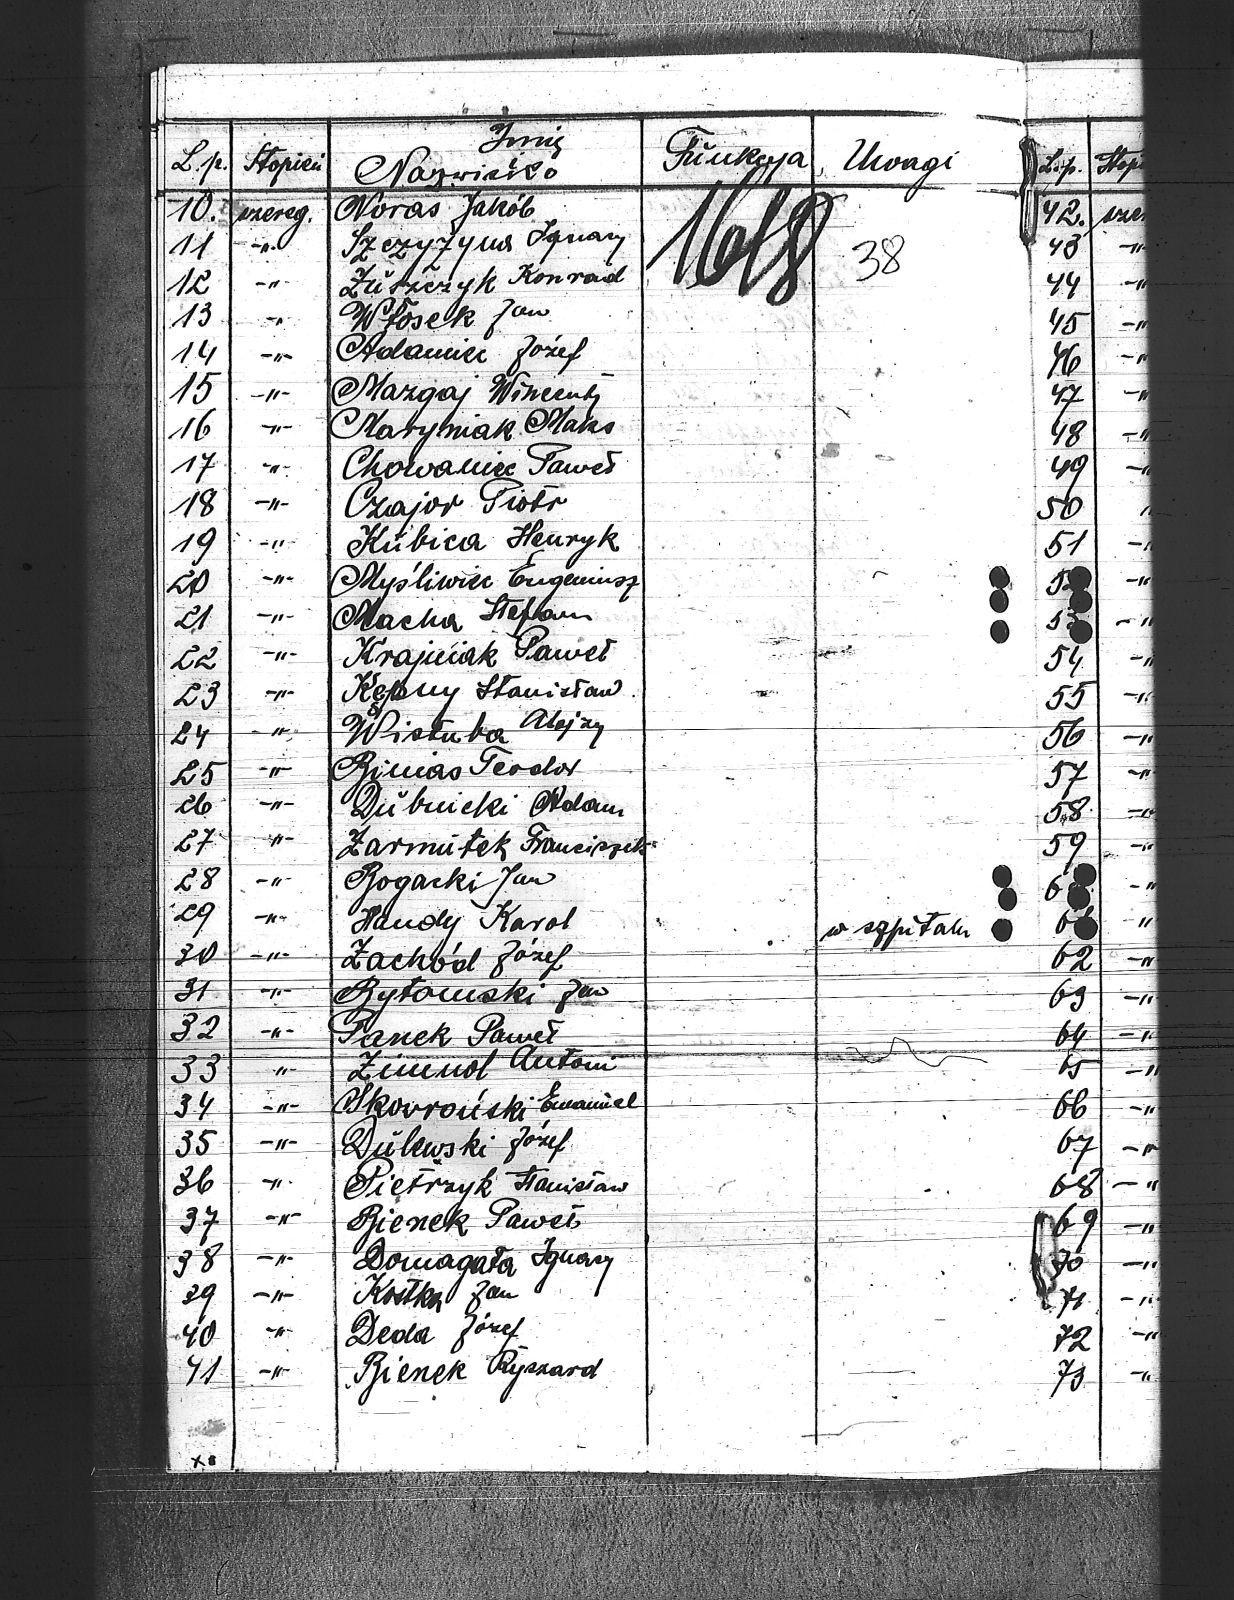 L.p. Stopień Imię Nazwisko Funkcja Uwagi
10. szereg. Noras Jakób
11 -"- Szczyżyna Ignacy 38
12 -"- Zuszczyk Konrad
13 -"- Włosek Jan
14 -"- Adamiec Józef
15 -"- Mazgaj Wincenty
16 -"- Maryniak Maks
17 -"- Chowaniec Paweł
18 -"- Czajor Piotr
19 -"- Kubica Henryk
20 -"- Myśliwiec Eugeniusz
21 -"- Macha Stefan
22 -"- Krajniak Paweł
23 -"- Kępny Stanisław
24 -"- Wistuba Alojzy
25 -"- Bimias Teodor
26 -"- Dubnicki Adam
27 -"- Żarmutek Franciszek
28 -"- Bogacki Jan
29 -"- Handy Karol w szpitalu
30 -"- Zachód Józef
31 -"- Bytomski Jan
32 -"- Panek Paweł
33 -"- Zimnol Antoni
34 -"- Skowroński Emanuel
35 -"- Dulewski Józef
36 -"- Pietrzyk Stanisław
37 -"- Bienek Paweł
38 -"- Domagała Ignacy
39 -"- Kostka Jan
40 -"- Deda Józef
41 -"- Bienek Ryszard
L.p. Stop
42. szer
43 -"-
44 -"-
45 -"-
46 -"-
47 -"-
48 -"-
49 -"-
50 "
51 -"-
54 -"-
55 -"-
56 -"-
57 -"-
58 -"-
59 -"-
62 -"-
63 -"-
64 -"-
65 -"-
66 -"-
67 -"-
68 -"-
69 -"-
70 -"-
71 -"-
72 -"-
73 -"-